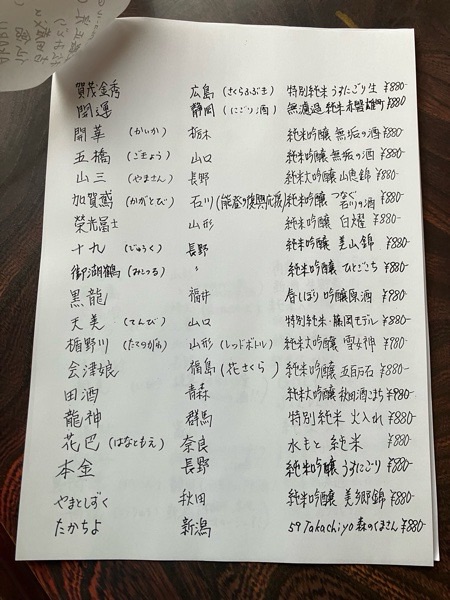 賀茂金秀 広島 (さくらふぶき) 特別純米 うすにごり生 ¥880-
開運 静岡 (にごり酒) 無濾過 純米 赤磐雄町 ¥880-
開華 (かいか) 栃木 純米吟醸 無垢の酒 ¥880-
五橋 (ごきょう) 山口 純米吟醸 無垢の酒 ¥880-
山三 (やまさん) 長野 純米大吟醸 山恵錦 ¥880-
加賀鳶 (かがとび) 石川 (能登の復興応援) 純米吟醸 つなぐ石川の酒 ¥880-
榮光冨士 山形 純米吟醸 白燿 ¥880-
十九 (じゅうく) 長野 純米吟醸 美山錦 ¥880-
御湖鶴 (みこつる) 〃 純米吟醸 ひとごこち ¥880-
黒龍 福井 春しぼり 吟醸原酒 ¥980-
天美 (てんび) 山口 特別純米・藤岡モデル ¥880-
楯野川 (たてのがわ) 山形 (レッドボトル) 純米大吟醸 雪女神 ¥980-
会津娘 福島 (花さくら) 純米吟醸 五百万石 ¥880-
田酒 青森 純米大吟醸 秋田酒こまち ¥980-
龍神 群馬 特別純米 火入れ ¥880-
花巴 (はなともえ) 奈良 水もと 純米 ¥880-
本金 長野 純米吟醸 うすにごり ¥880-
やまとしずく 秋田 純米吟醸 美郷錦 ¥880-
たかちよ 新潟 59 Takachiyo 森のくまさん ¥880-